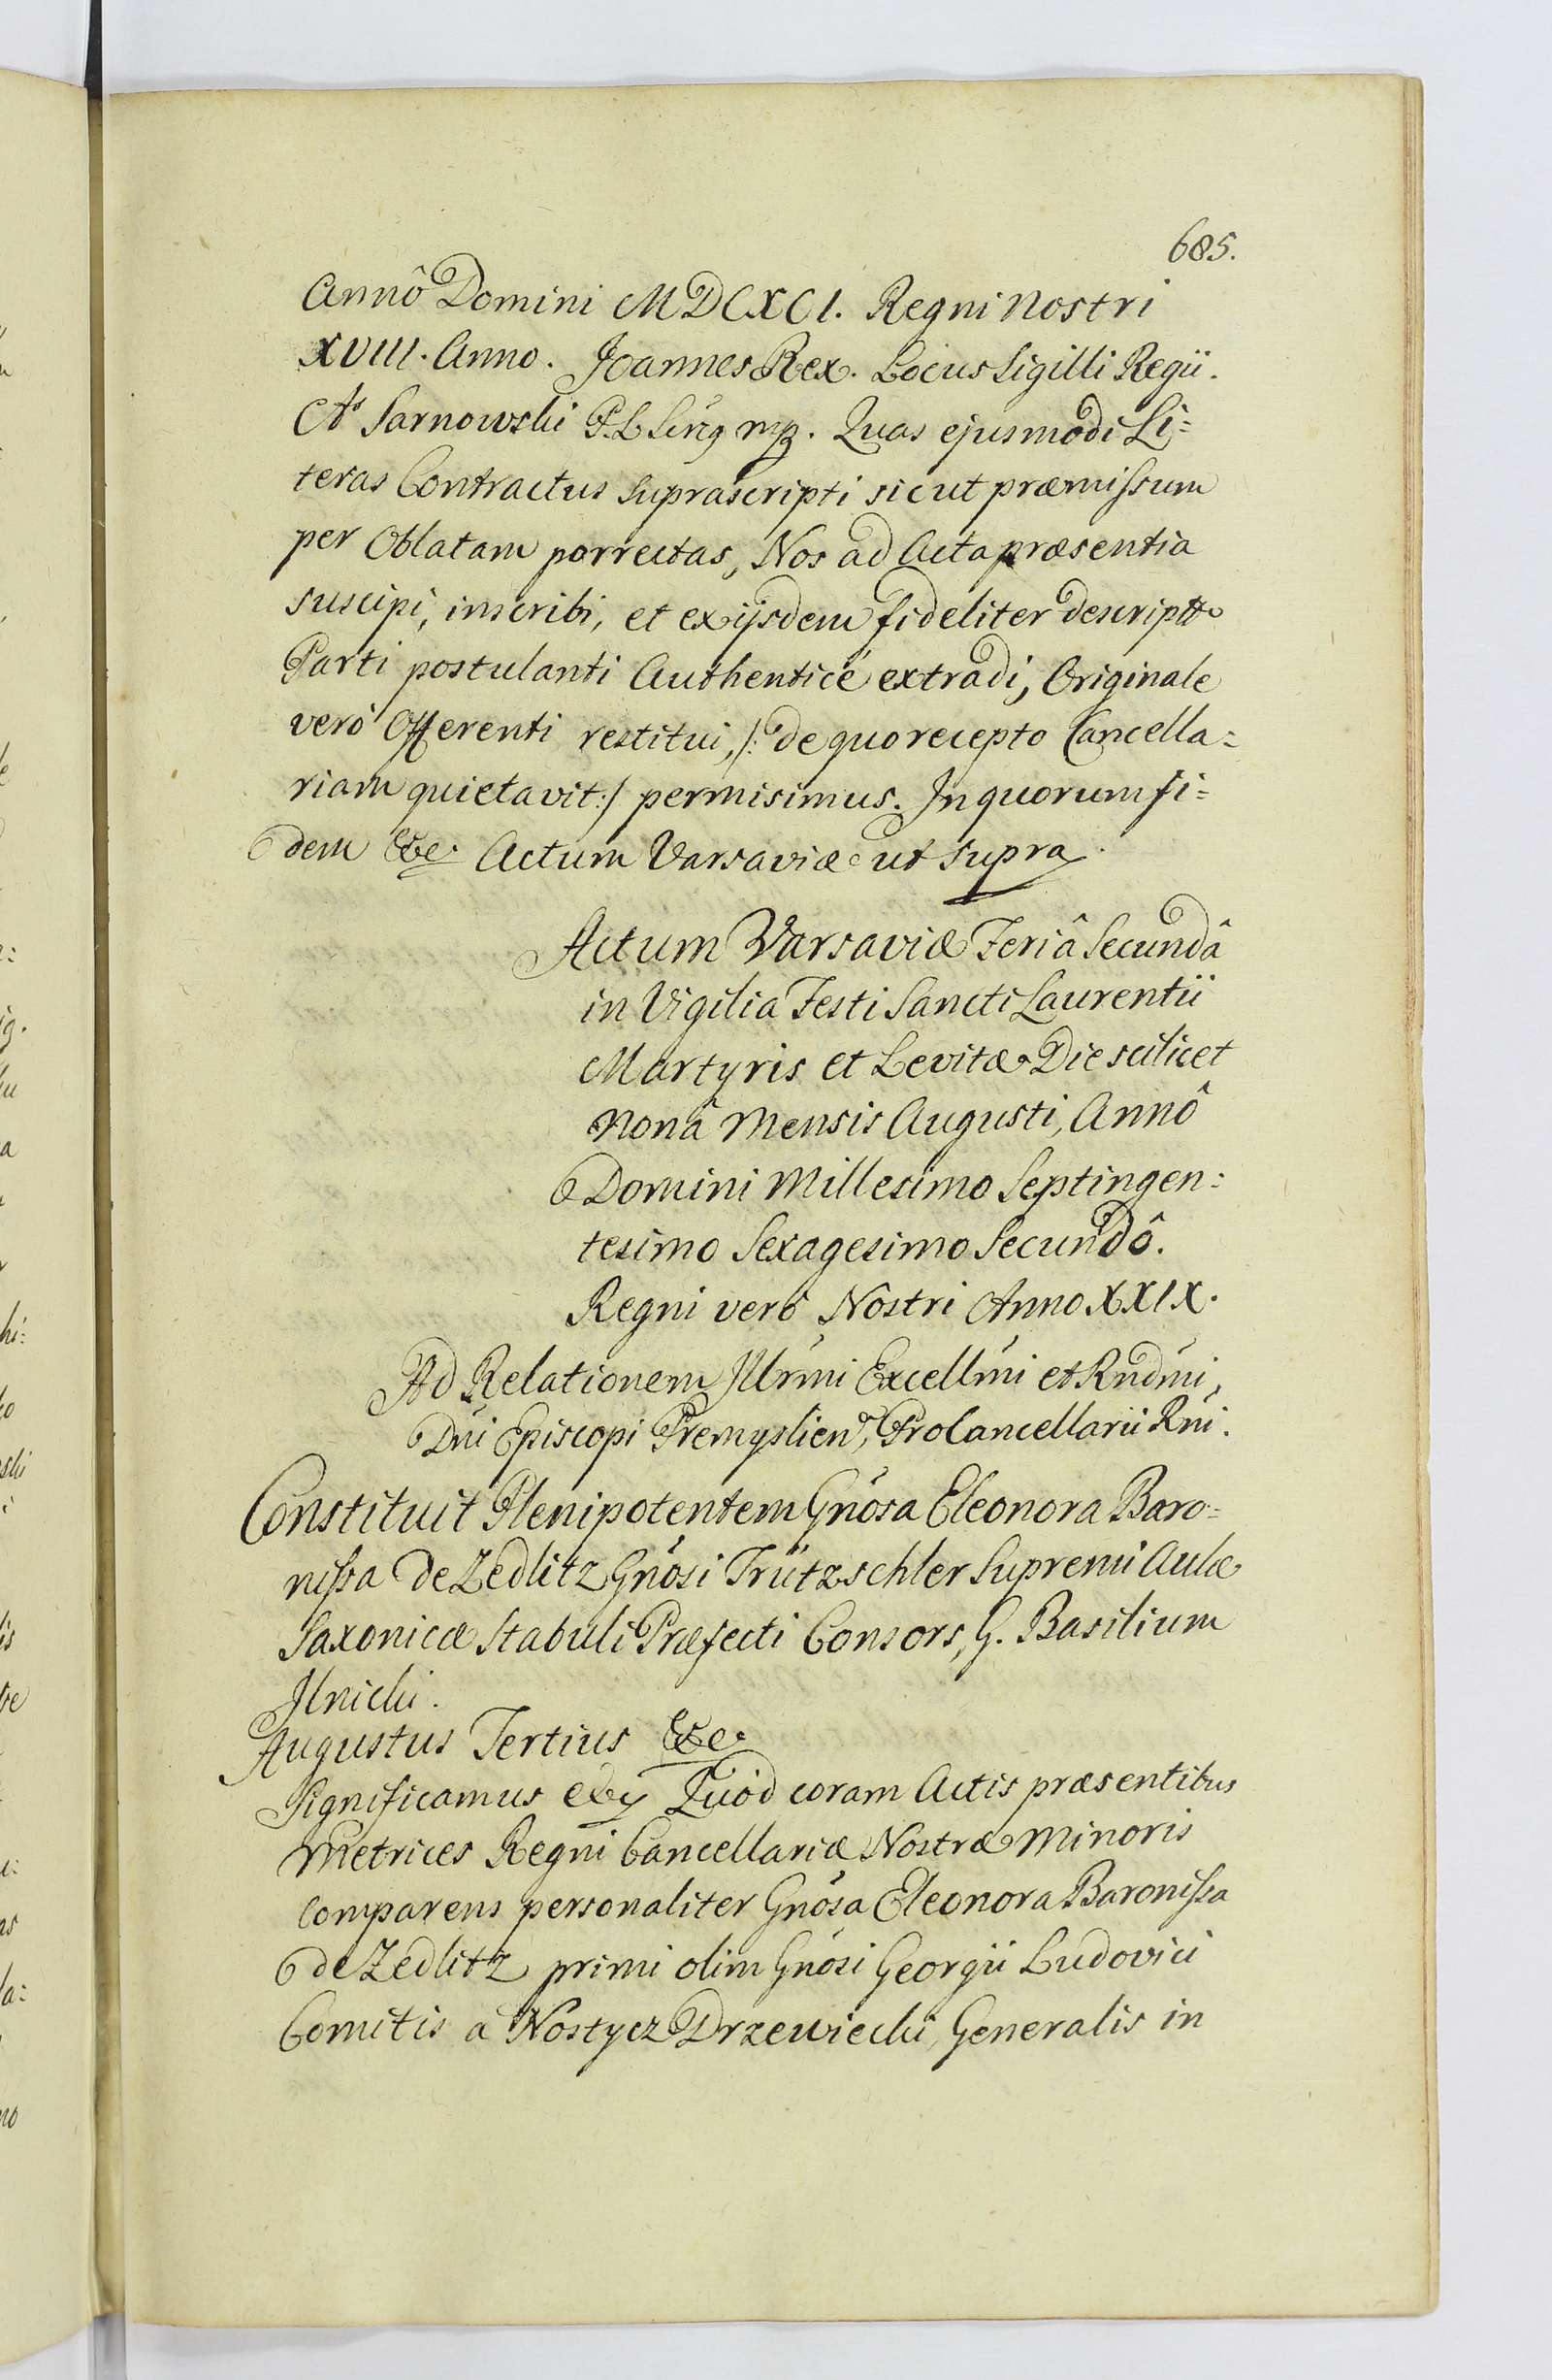 685.
Annô Domini MDCXCI. Regni Nostri
XVIII. Anno. Joannes Rex. Locus Sigilli Regii.
As Sarnowski mp. Quas ejusmodi Li=
teras Contractus suprascripti sicut præmissum
per Oblatam porrectas, Nos ad Acta præsentia
suscipi, inscribi, et ex ijsdem fideliter descriptte
Parti postulanti Authenticè extradi, Originale
verò Offerenti restitui, /: de quo recepto Cancella=
riam quietavit :/ permisimus. In quorum fi=
dem &c. Actum Varsaviæ ut supra.
Actum Varsaviæ Feriâ Secundâ
in Vigilia Festi Sancti Laurentii
Martyris et Levitæ Die scilicet
Nonâ Mensis Augusti, Annô
Domini Millesimo Septingen:
tesimo Sexagesimo Secundô.
Regni verò Nostri Anno XXIX.
Ad Relationem Illrmi Excellmi et Rndmi,
Dni Episcopi Premyslien, ProCancellarii Rni.
Constituit Plenipotentem Gnosa Eleonora Baro=
nissa de Zedlitz Gnosi Trützschler Supremi Aulæ
Saxonicæ Stabuli Præfecti Consors, G. Basilium
Ilnicki.
Augustus Tertius &c.
Significamus &c. Quod coram Actis præsentibus
Metrices Regni Cancellariæ Nostræ Minoris
comparens personaliter Gnosa Eleonora Baronissa
de Zedlitz primi olim Gnosi Georgii Ludovici
Comitis à Nostycz Drzewiecki, Generalis in